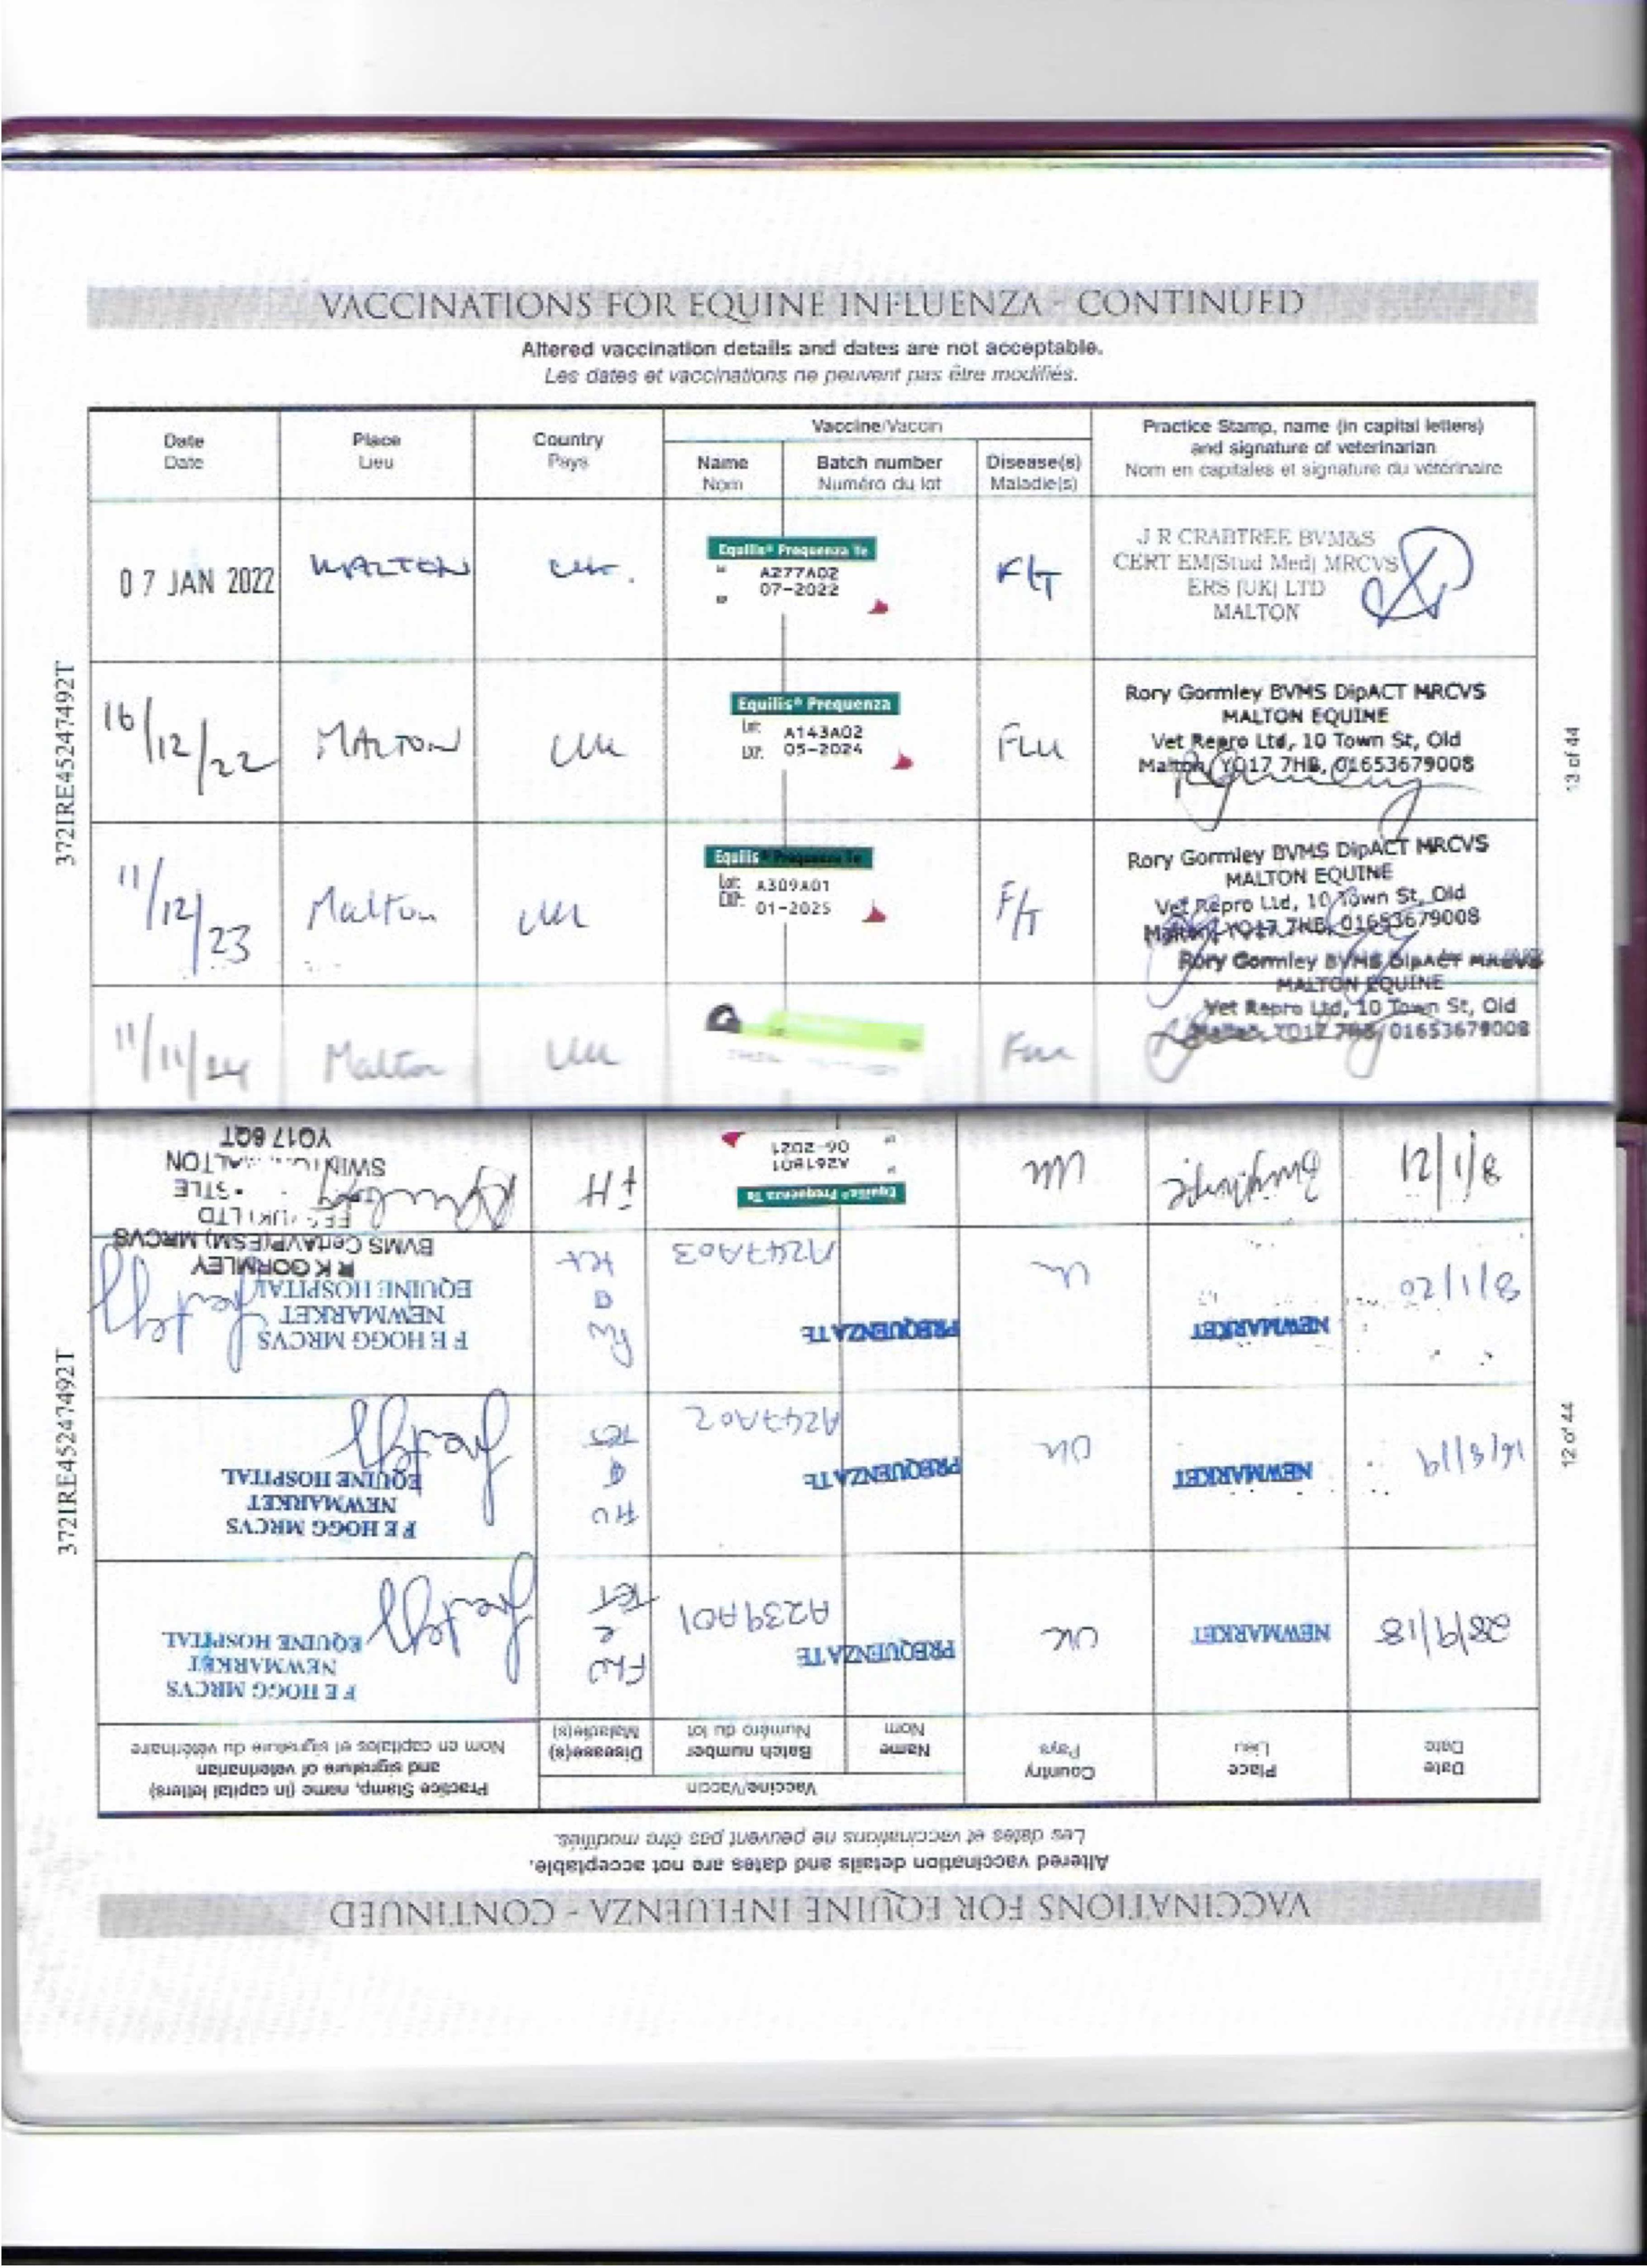 VACCINATIONS FOR EQUINE INFLUENZA - CONTINUED
Altered vaccination details and dates are not acceptable.
Les dates et vaccinations ne peuvent pas être modifiés.
Date
Date
Place
Lieu
Country
Pays
Vaccine/Vaccin
Name
Nom
Batch number
Numéro du lot
Disease(s)
Maladie(s)
Practice Stamp, name (in capital letters)
and signature of veterinarian
Nom en capitales et signature du vétérinaire
07 JAN 2022
MALTON
UK.
Equilis® Prequenza Te
A277A02
07-2022
F/T
J R CRABTREE BVM&S
CERT EM(Stud Med) MRCVS
ERS (UK) LTD
MALTON
16/12/22
MALTON
UK
Equilis® Prequenza
Lot: A143A02
EXP: 05-2024
FLU
Rory Gormley BVMS DipACT MRCVS
MALTON EQUINE
Vet Repro Ltd, 10 Town St, Old
Malton, YO17 7HB, 01653679008
11/12/23
Malton
UK
Equilis® Prequenza Te
Lot: A309A01
EXP: 01-2025
F/T
Rory Gormley BVMS DipACT MRCVS
MALTON EQUINE
Vet Repro Ltd, 10 Town St, Old
Malton, YO17 7HB, 01653679008
11/11/24
Malton
UK
Rory Gormley BVMS DipACT MRCVS
MALTON EQUINE
Vet Repro Ltd, 10 Town St, Old
Malton, YO17 7HB, 01653679008
372IRE45247492T
13 of 44
VACCINATIONS FOR EQUINE INFLUENZA - CONTINUED
Altered vaccination details and dates are not acceptable.
Les dates et vaccinations ne peuvent pas être modifiés.
Date
Date
Place
Lieu
Country
Pays
Vaccine/Vaccin
Name
Nom
Batch number
Numéro du lot
Disease(s)
Maladie(s)
Practice Stamp, name (in capital letters)
and signature of veterinarian
Nom en capitales et signature du vétérinaire
28/9/18
NEWMARKET
UK
PREQUENZA TE
A239A01
FLU
TET
F E HOGG MRCVS
NEWMARKET
EQUINE HOSPITAL
16/3/19
NEWMARKET
UK
PREQUENZA TE
A247A02
FLU
TET
F E HOGG MRCVS
NEWMARKET
EQUINE HOSPITAL
8/1/20
NEWMARKET
UK
PREQUENZA TE
A247A03
Flu
TET
F E HOGG MRCVS
NEWMARKET
EQUINE HOSPITAL
8/1/21
UK
Equilis® Prequenza Te
A261B01
06-2021
R K GORMLEY
BVMS CertAVP(ESM) MRCVS
LTD
YO17 6QT
372IRE45247492T
12 of 44